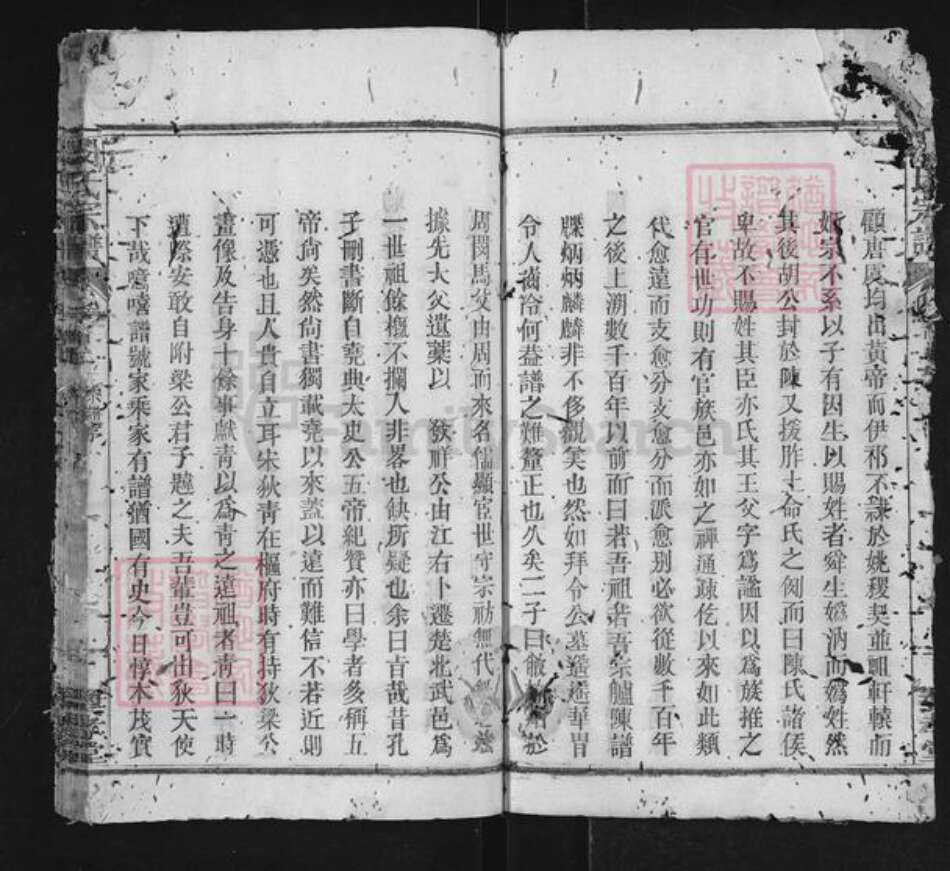 顓唐虞均出黃帝而伊祁不隸於姚稷契並祖軒轅而
姬宗不系以子有因生以賜姓者舜生嬀汭而嬀姓然
其後胡公封於陳又援胙土命氏之例而曰陳氏諸侯
卑故不賜姓其臣亦氏其王父字為謚因以為族推之
官有世功則有官族邑亦如之禪通疏仡以來如此類
代愈遠而支愈分支愈分而派愈別必欲從數千百年
之後上溯數千百年以前而曰若吾祖若吾宗臚陳譜
牒炳炳麟麟非不侈觀美也然如拜令公墓遙遙華冑
令人齒冷何益譜之難釐正也久矣二子曰敝
周閔馬父由周而來名儒顯宦世守宗祊無代無之茲
據先大父遺藁以 發祥公由江右卜遷楚北武邑為
一世祖餘槪不攔入非畧也缺所疑也余曰旨哉昔孔
子刪書斷自堯典太史公五帝紀贊亦曰學者多稱五
帝尙矣然尙書獨載堯以來蓋以遠而難信不若近則
可憑也且人貴自立耳宋狄青在樞府時有持狄梁公
畫像及告身十餘事獻青以為青之遠祖者青曰一時
遭際安敢自附梁公君子韙之夫吾輩豈可出狄天使
下哉噫嘻譜號家乘家有譜猶國有史今日惇本茂實
氏宗譜
FamilySearch